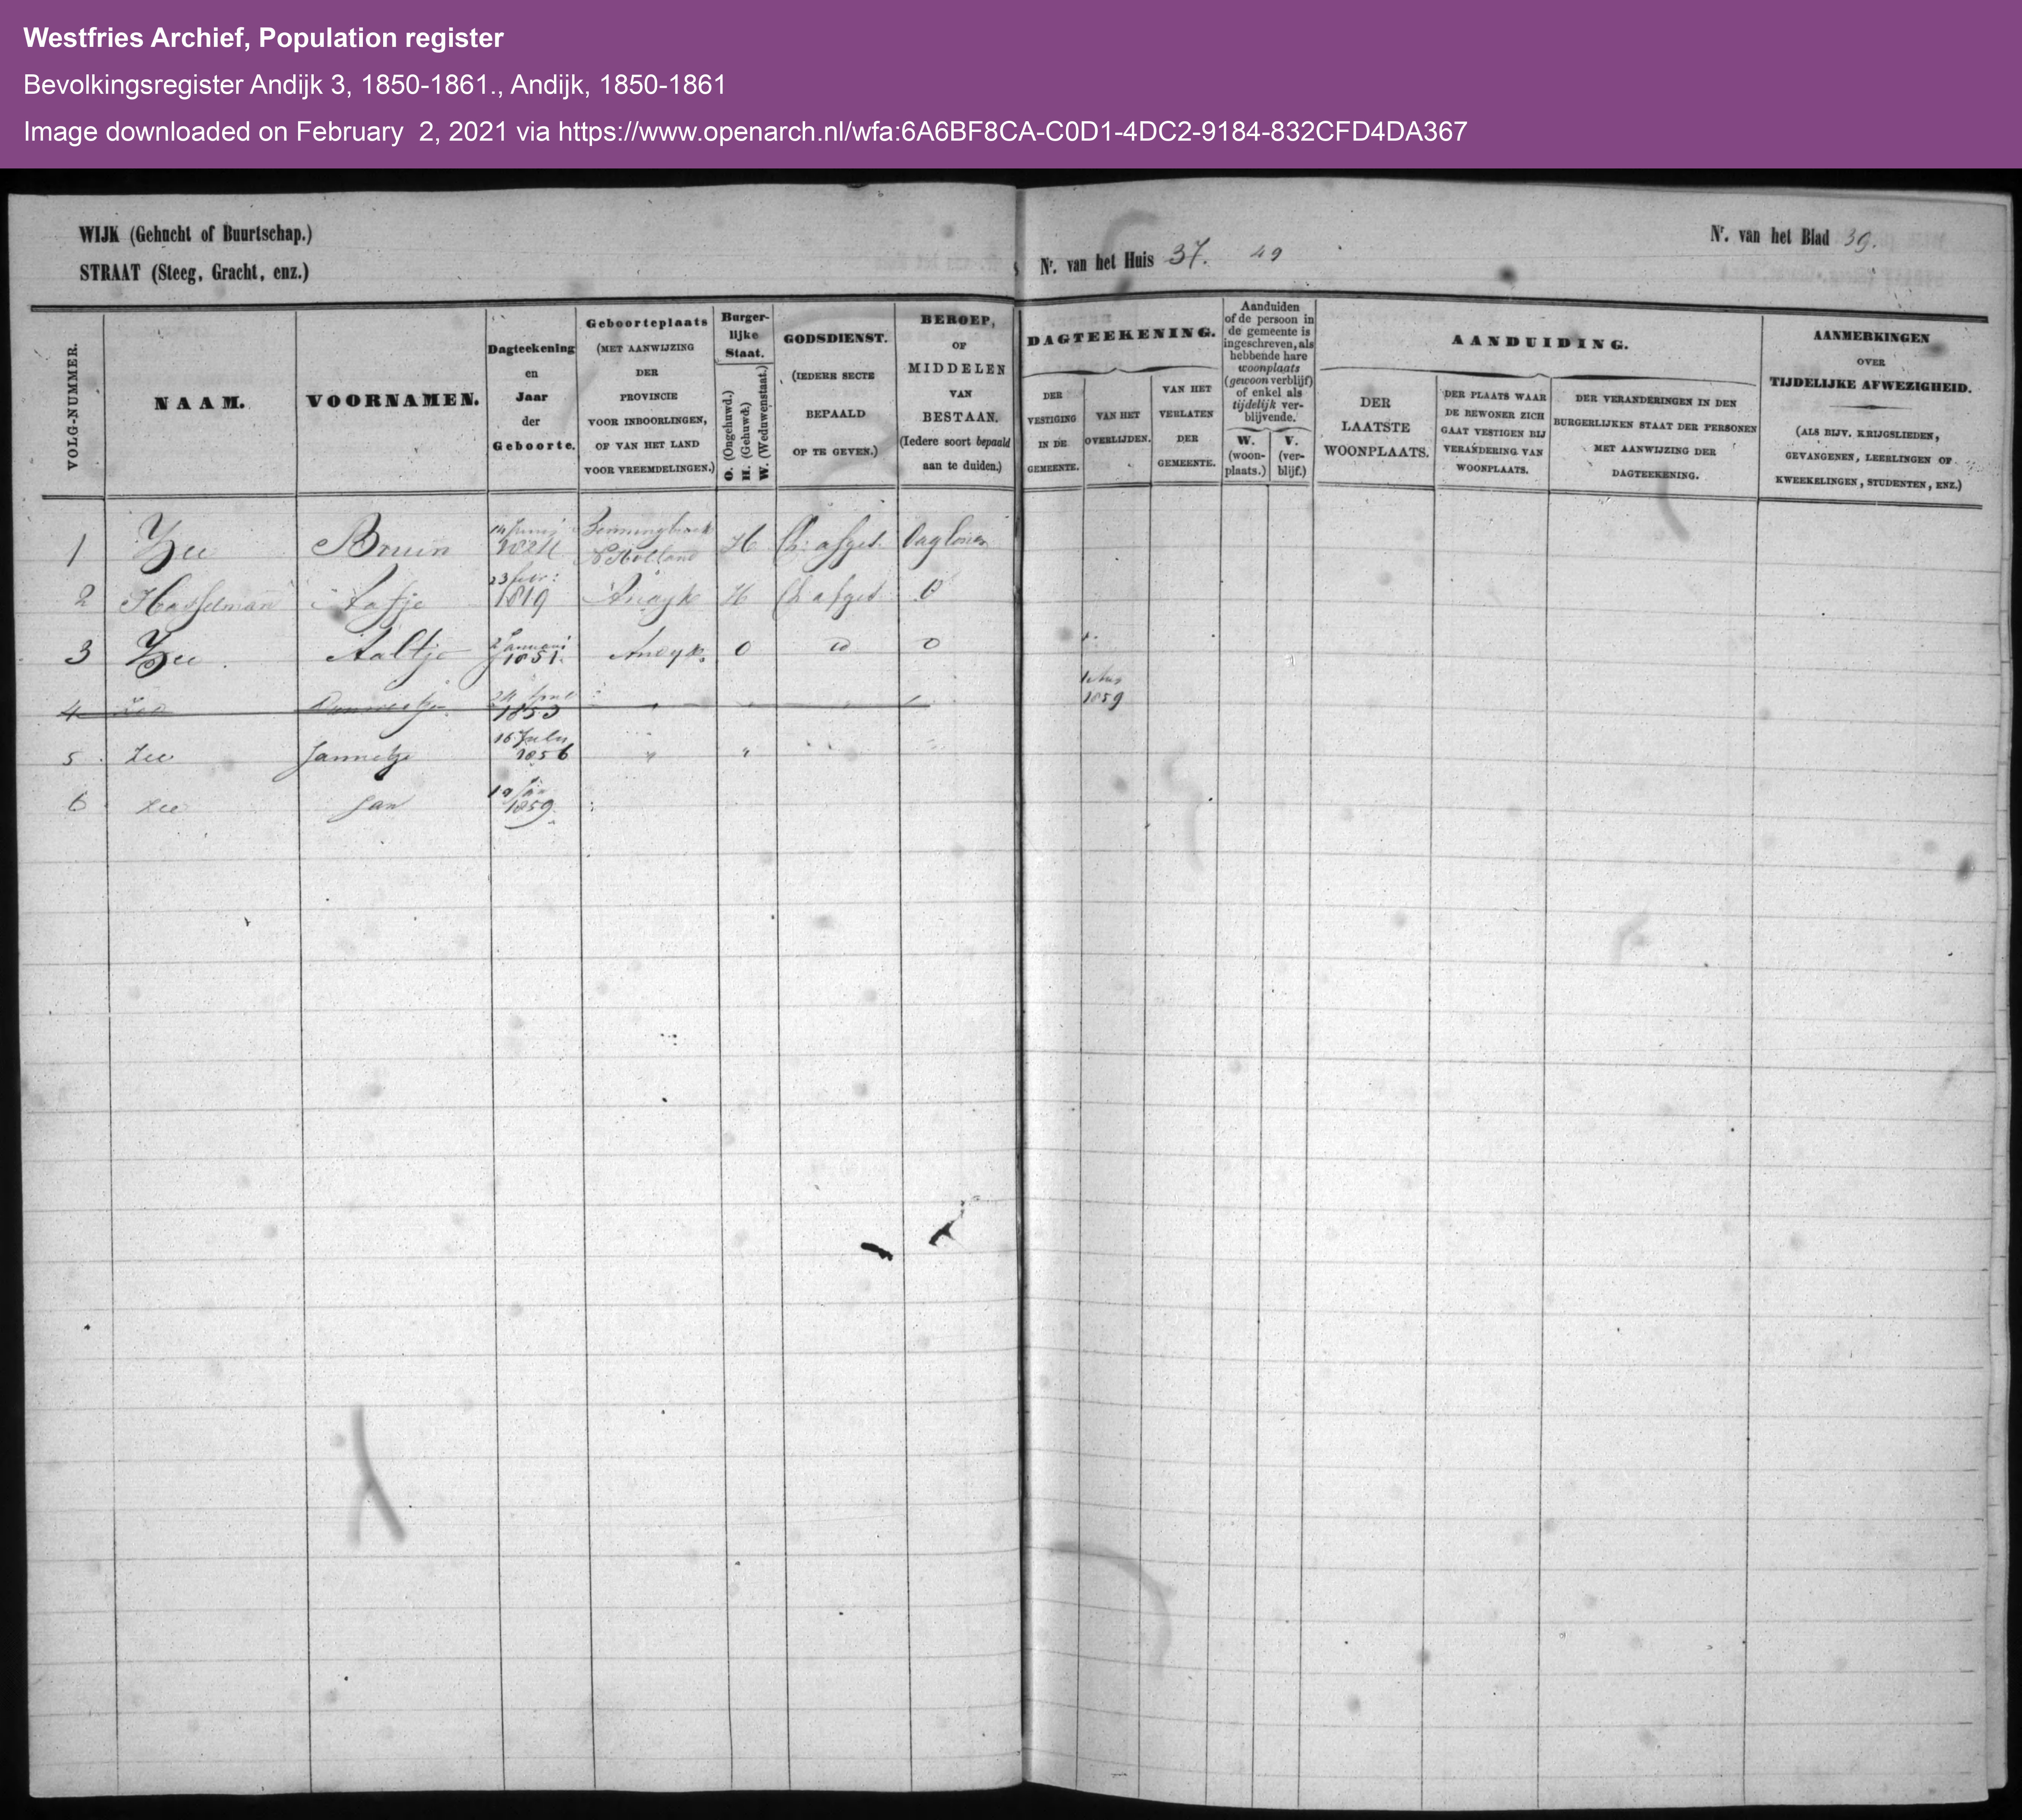 Westfries Archief, Population register
Bevolkingsregister Andijk 3, 1850-1861., Andijk, 1850-1861
Image downloaded on February  2, 2021 via https://www.openarch.nl/wfa:6A6BF8CA-C0D1-4DC2-9184-832CFD4DA367
WIJK (Gehucht of Buurtschap.)
STRAAT (Steeg, Gracht, enz.)
Nr. van het Huis 37. 49
Nr. van het Blad 39.
VOLG-NUMMER.
NAAM.
VOORNAMEN.
Dagteekening
en
Jaar
der
Geboorte.
Geboorteplaats
(MET AANWIJZING
DER
PROVINCIE
VOOR INBOORLINGEN,
OF VAN HET LAND
VOOR VREEMDELINGEN.)
Burger-
lijke
Staat.
O. (Ongehuwd.)
H. (Gehuwd.)
W. (Weduwenstaat.)
GODSDIENST.
(IEDERE SECTE
BEPAALD
OP TE GEVEN.)
BEROEP,
OF
MIDDELEN
VAN
BESTAAN.
(Iedere soort bepaald
aan te duiden.)
DAGTEEKENING.
DER
VESTIGING
IN DE
GEMEENTE.
VAN HET
OVERLIJDEN.
VAN HET
VERLATEN
DER
GEMEENTE.
Aanduiden
of de persoon in
de gemeente is
ingeschreven, als
hebbende hare
woonplaats
(gewoon verblijf)
of enkel als
tijdelijk ver-
blijvende.
W.
(woon-
plaats.)
V.
(ver-
blijf.)
AANDUIDING.
DER
LAATSTE
WOONPLAATS.
DER PLAATS WAAR
DE BEWONER ZICH
GAAT VESTIGEN BIJ
VERANDERING VAN
WOONPLAATS.
DER VERANDERINGEN IN DEN
BURGERLIJKEN STAAT DER PERSONEN
MET AANWIJZING DER
DAGTEEKENING.
AANMERKINGEN
OVER
TIJDELIJKE AFWEZIGHEID.
(ALS BIJV. KRIJGSLIEDEN,
GEVANGENEN, LEERLINGEN OF
KWEEKELINGEN, STUDENTEN, ENZ.)
1 Zee Bruin H Ch. afges.
N Holland
2 Hasselman Aafje 23 1819 Andyk H Ch afges
3 Zee Aaltje 2 Januari 1851. Andyk. O
4 Zee 1853 1859
5 Zee Jannetje 16 July 1856 "
6 Zee Jan 19 Jan 1859